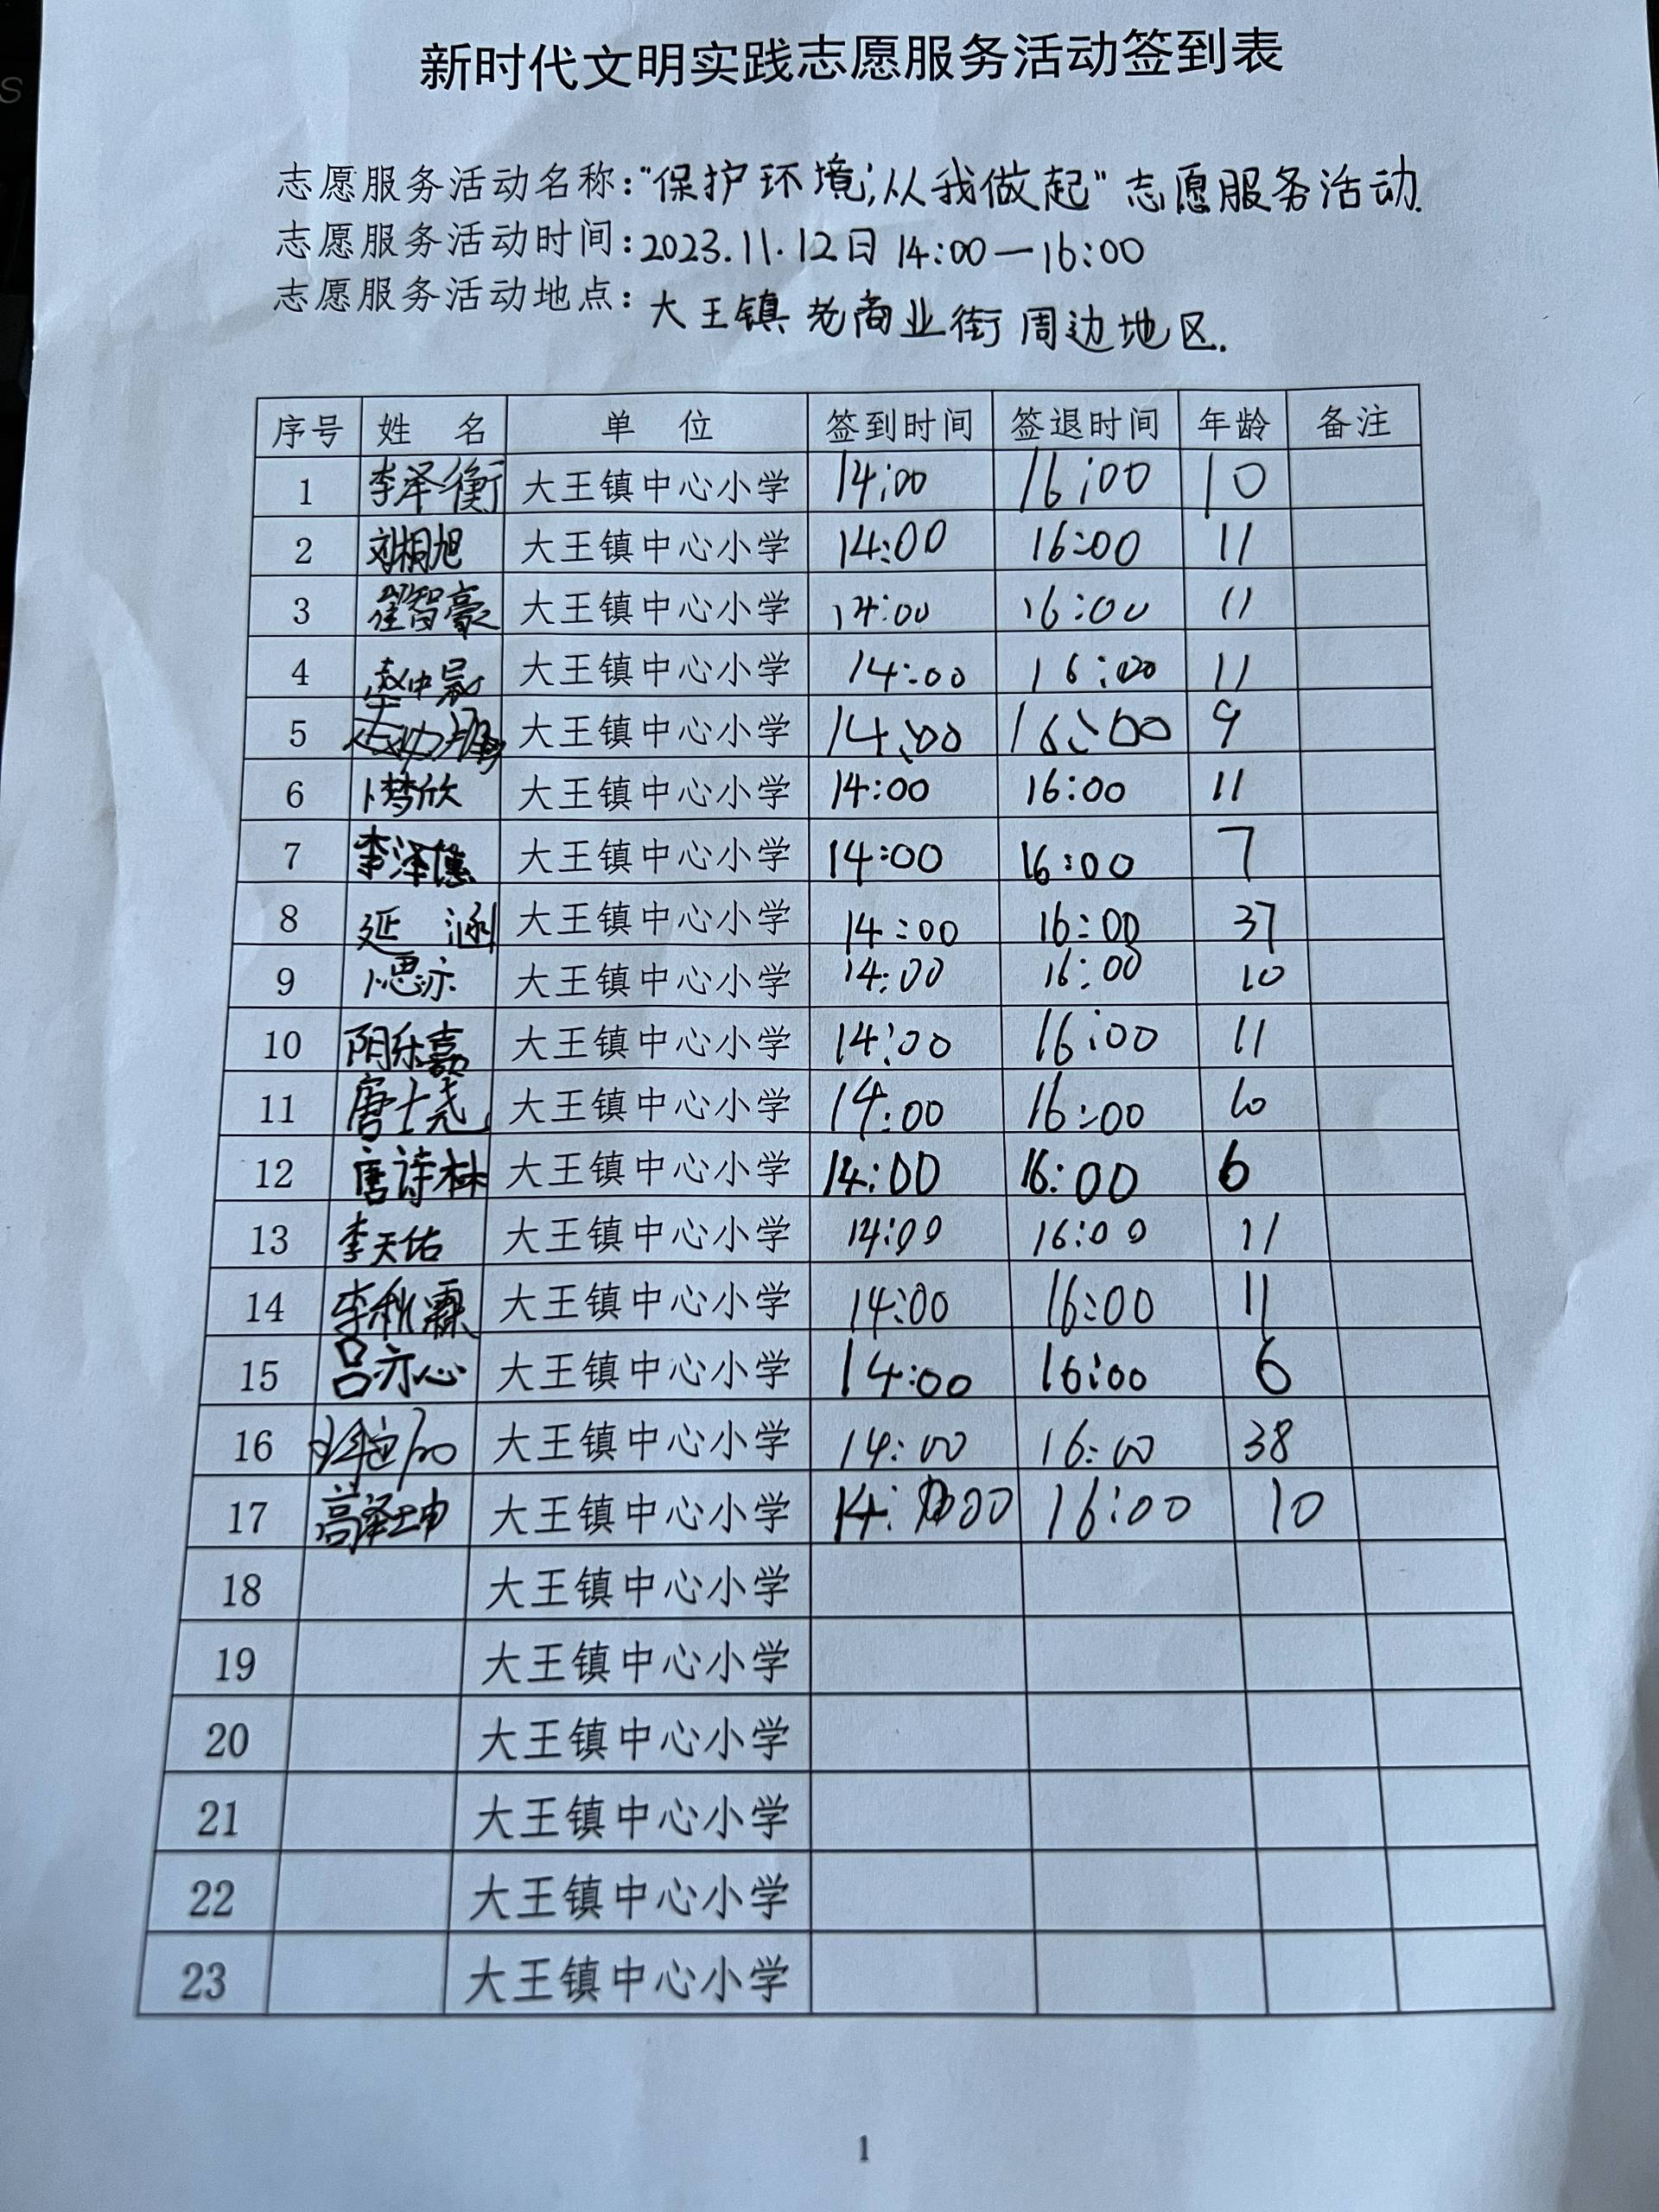 新时代文明实践志愿服务活动签到表
志愿服务活动名称："保护环境，从我做起"志愿服务活动.
志愿服务活动时间：2023.11.12日 14:00—16:00
志愿服务活动地点：大王镇老商业街周边地区.
序号 姓 名 单 位 签到时间 签退时间 年龄 备注
1 李泽衡 大王镇中心小学 14:00 16:00 10
2 刘桐旭 大王镇中心小学 14:00 16:00 11
3 翟智豪 大王镇中心小学 14:00 16:00 11
4 大王镇中心小学 14:00 16:00 11
5 大王镇中心小学 14:00 16:00 9
6 卜梦欣 大王镇中心小学 14:00 16:00 11
7 大王镇中心小学 14:00 16:00 7
8 延 涵 大王镇中心小学 14:00 16:00 37
9 卜思亦 大王镇中心小学 14:00 16:00 10
10 阳乐嘉 大王镇中心小学 14:00 16:00 11
11 唐士尧 大王镇中心小学 14:00 16:00 10
12 唐诗林 大王镇中心小学 14:00 16:00 6
13 李天佑 大王镇中心小学 14:00 16:00 11
14 李秋霖 大王镇中心小学 14:00 16:00 11
15 吕亦心 大王镇中心小学 14:00 16:00 6
16 大王镇中心小学 14:00 16:00 38
17 高泽坤 大王镇中心小学 14:00 16:00 10
18 大王镇中心小学
19 大王镇中心小学
20 大王镇中心小学
21 大王镇中心小学
22 大王镇中心小学
23 大王镇中心小学
1